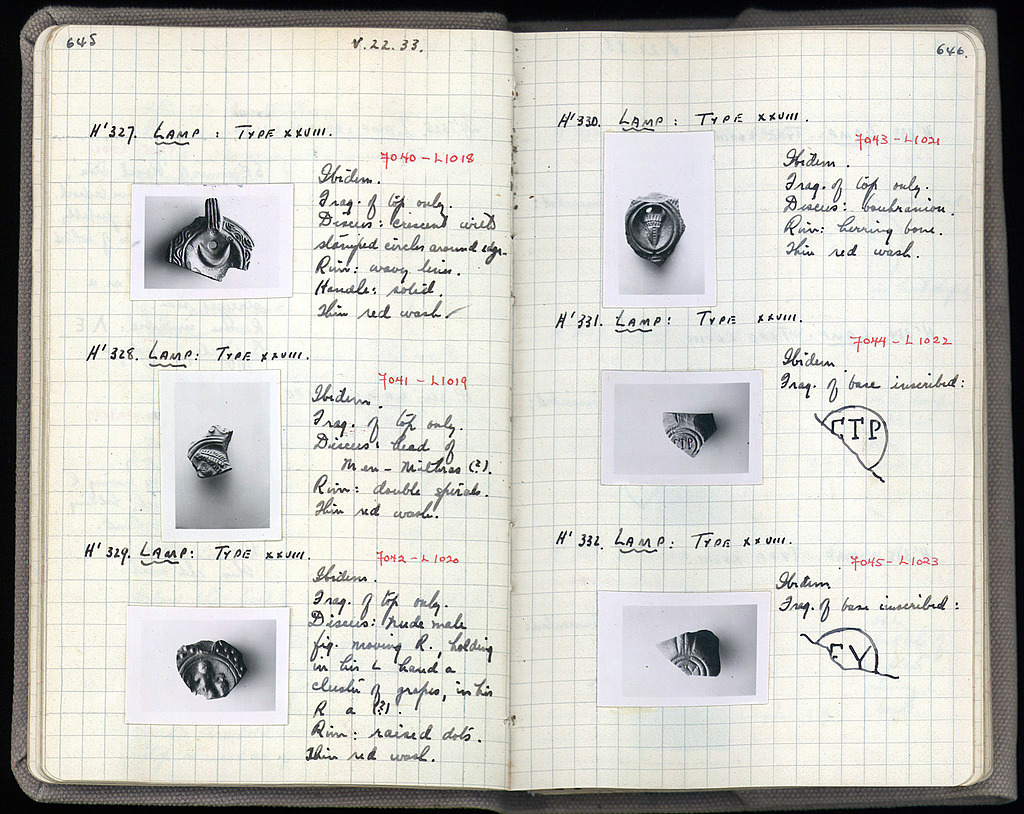 645
V.22.33.
H'327. LAMP : TYPE XXVIII.
7040 - L1018
Ibidem.
Frag. of top only.
Discus: crescent with
stamped circles around edge.
Rim: wavy lines.
Handle: solid.
Thin red wash.
H'328. LAMP: TYPE XXVIII.
7041 - L1019
Ibidem.
Frag. of top only.
Discus: head of
Men - Mithras (?).
Rim: double spirals.
Thin red wash.
H'329. LAMP: TYPE XXVIII.
7042 - L1020
Ibidem.
Frag. of top only.
Discus: Nude male
fig. moving R., holding
in his L hand a
cluster of grapes, in his
R a (?).
Rim: raised dots.
Thin red wash.
646.
H'330. LAMP: TYPE XXVIII.
7043 - L1021
Ibidem.
Frag. of top only.
Discus: boukranion.
Rim: herring bone.
Thin red wash.
H'331. LAMP: TYPE XXVIII.
7044 - L1022
Ibidem.
Frag. of base inscribed:
CTP
H'332. LAMP: TYPE XXVIII.
7045 - L1023
Ibidem.
Frag. of base inscribed:
EY